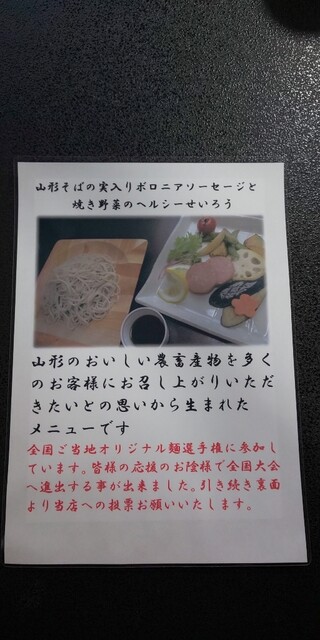 山形そばの実入りボロニアソーセージと
焼き野菜のヘルシーせいろう
山形のおいしい農畜産物を多く
のお客様にお召し上がりいただ
きたいとの思いから生まれた
メニューです
全国ご当地オリジナル麺選手権に参加し
ています。皆様の応援のお陰様で全国大会
へ進出する事が出来ました。引き続き裏面
より当店への投票お願いいたします。